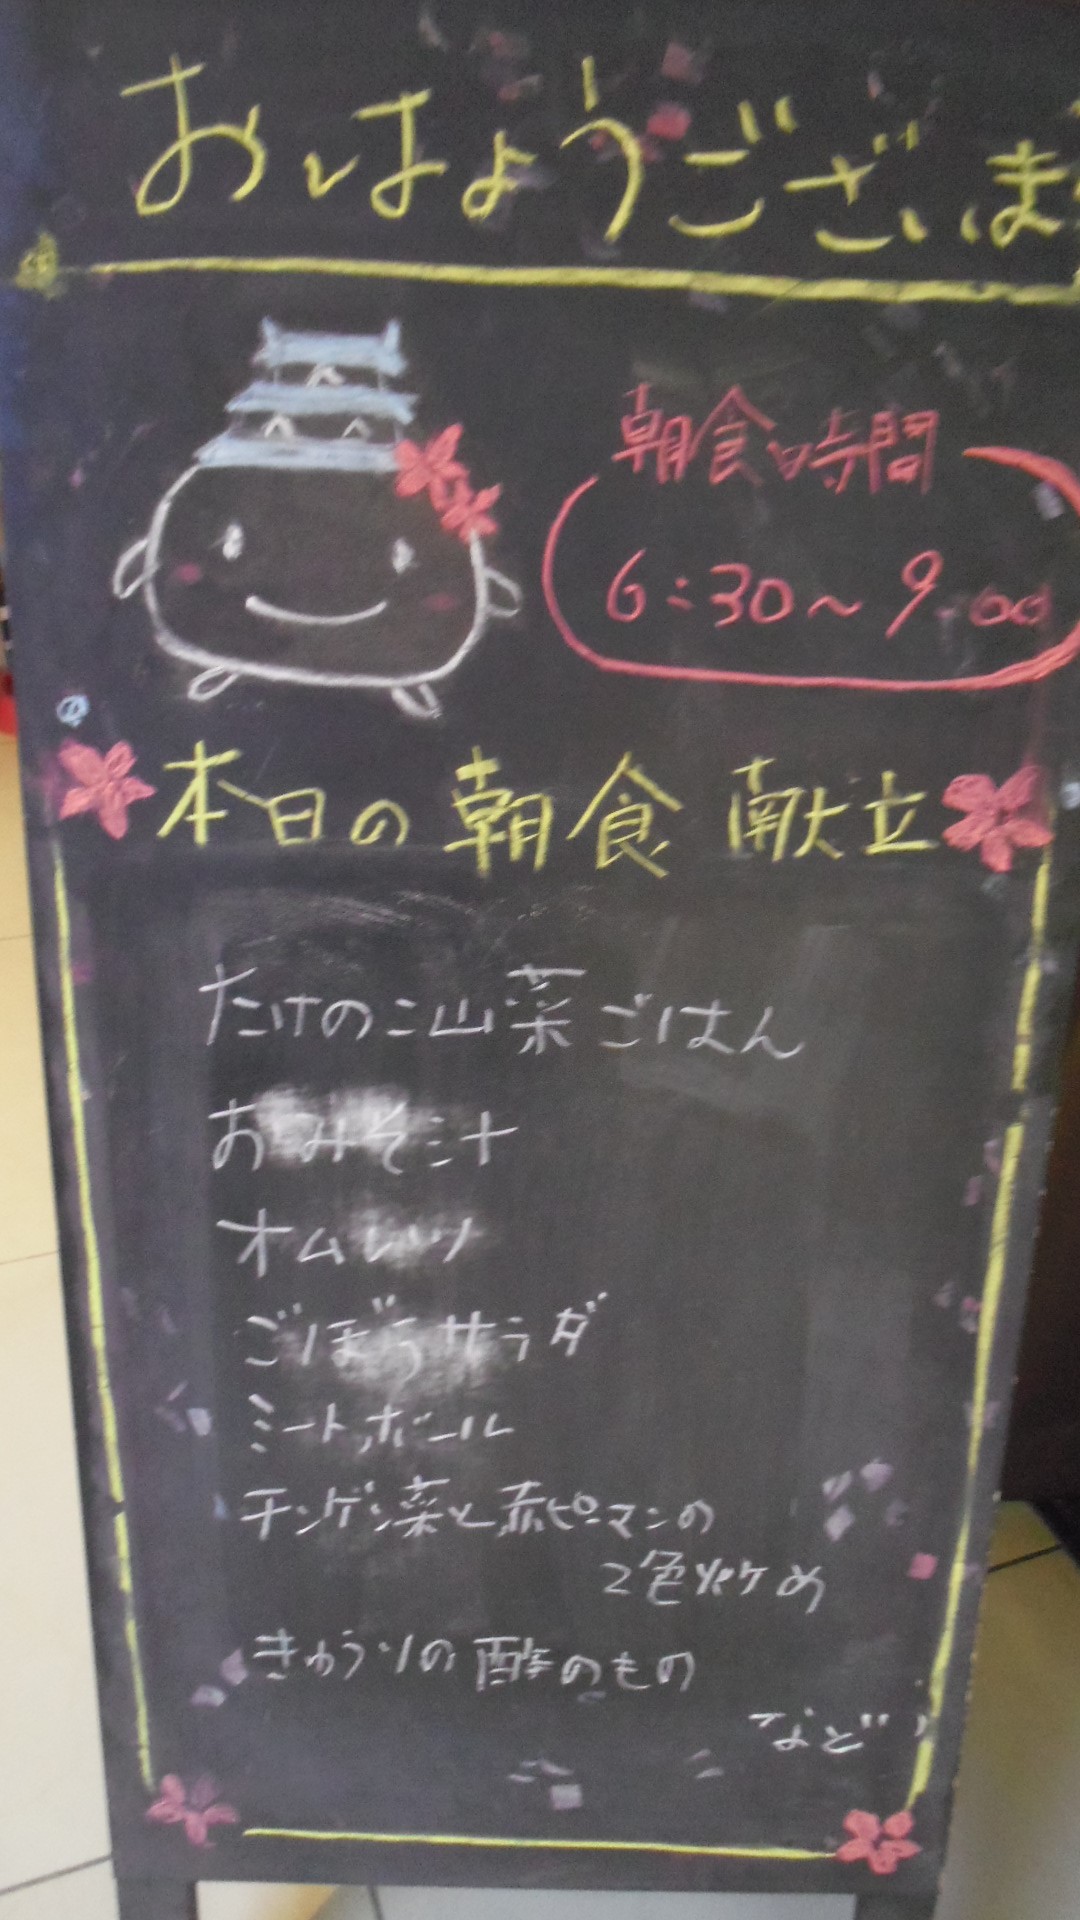 おはようございま
朝食時間
6:30～9:00
本日の朝食 献立
たけのこ山菜ごはん
おみそ汁
オムレツ
ごぼうサラダ
ミートボール
チンゲン菜と赤ピーマンの
2色炒め
きゅうりの酢のもの
など